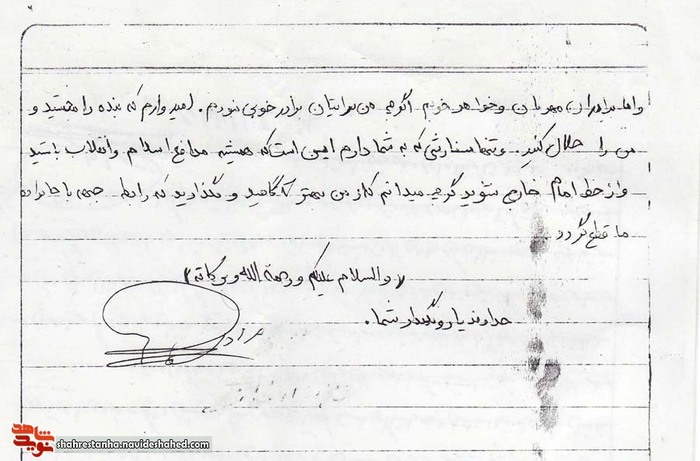 واما برادران مهربان وخواهر خوبم اگرچه من برایتان برادر خوبی نبودم. امیدوارم که بنده را ببخشید و
من را حلال کنید. وتنها سفارشی که به شما دارم این است که همیشه مدافع اسلام وانقلاب باشید
واز خط امام خارج نشوید گرچه میدانم که از من بهتر آگاهید و نگذارید که رابطه جبهه با خانواده
ما قطع گردد
«والسلام علیکم ورحمة الله وبرکاته»
خداوند یار ونگهدار شما.
نوید شاهد
shahrestanha.navideshahed.com